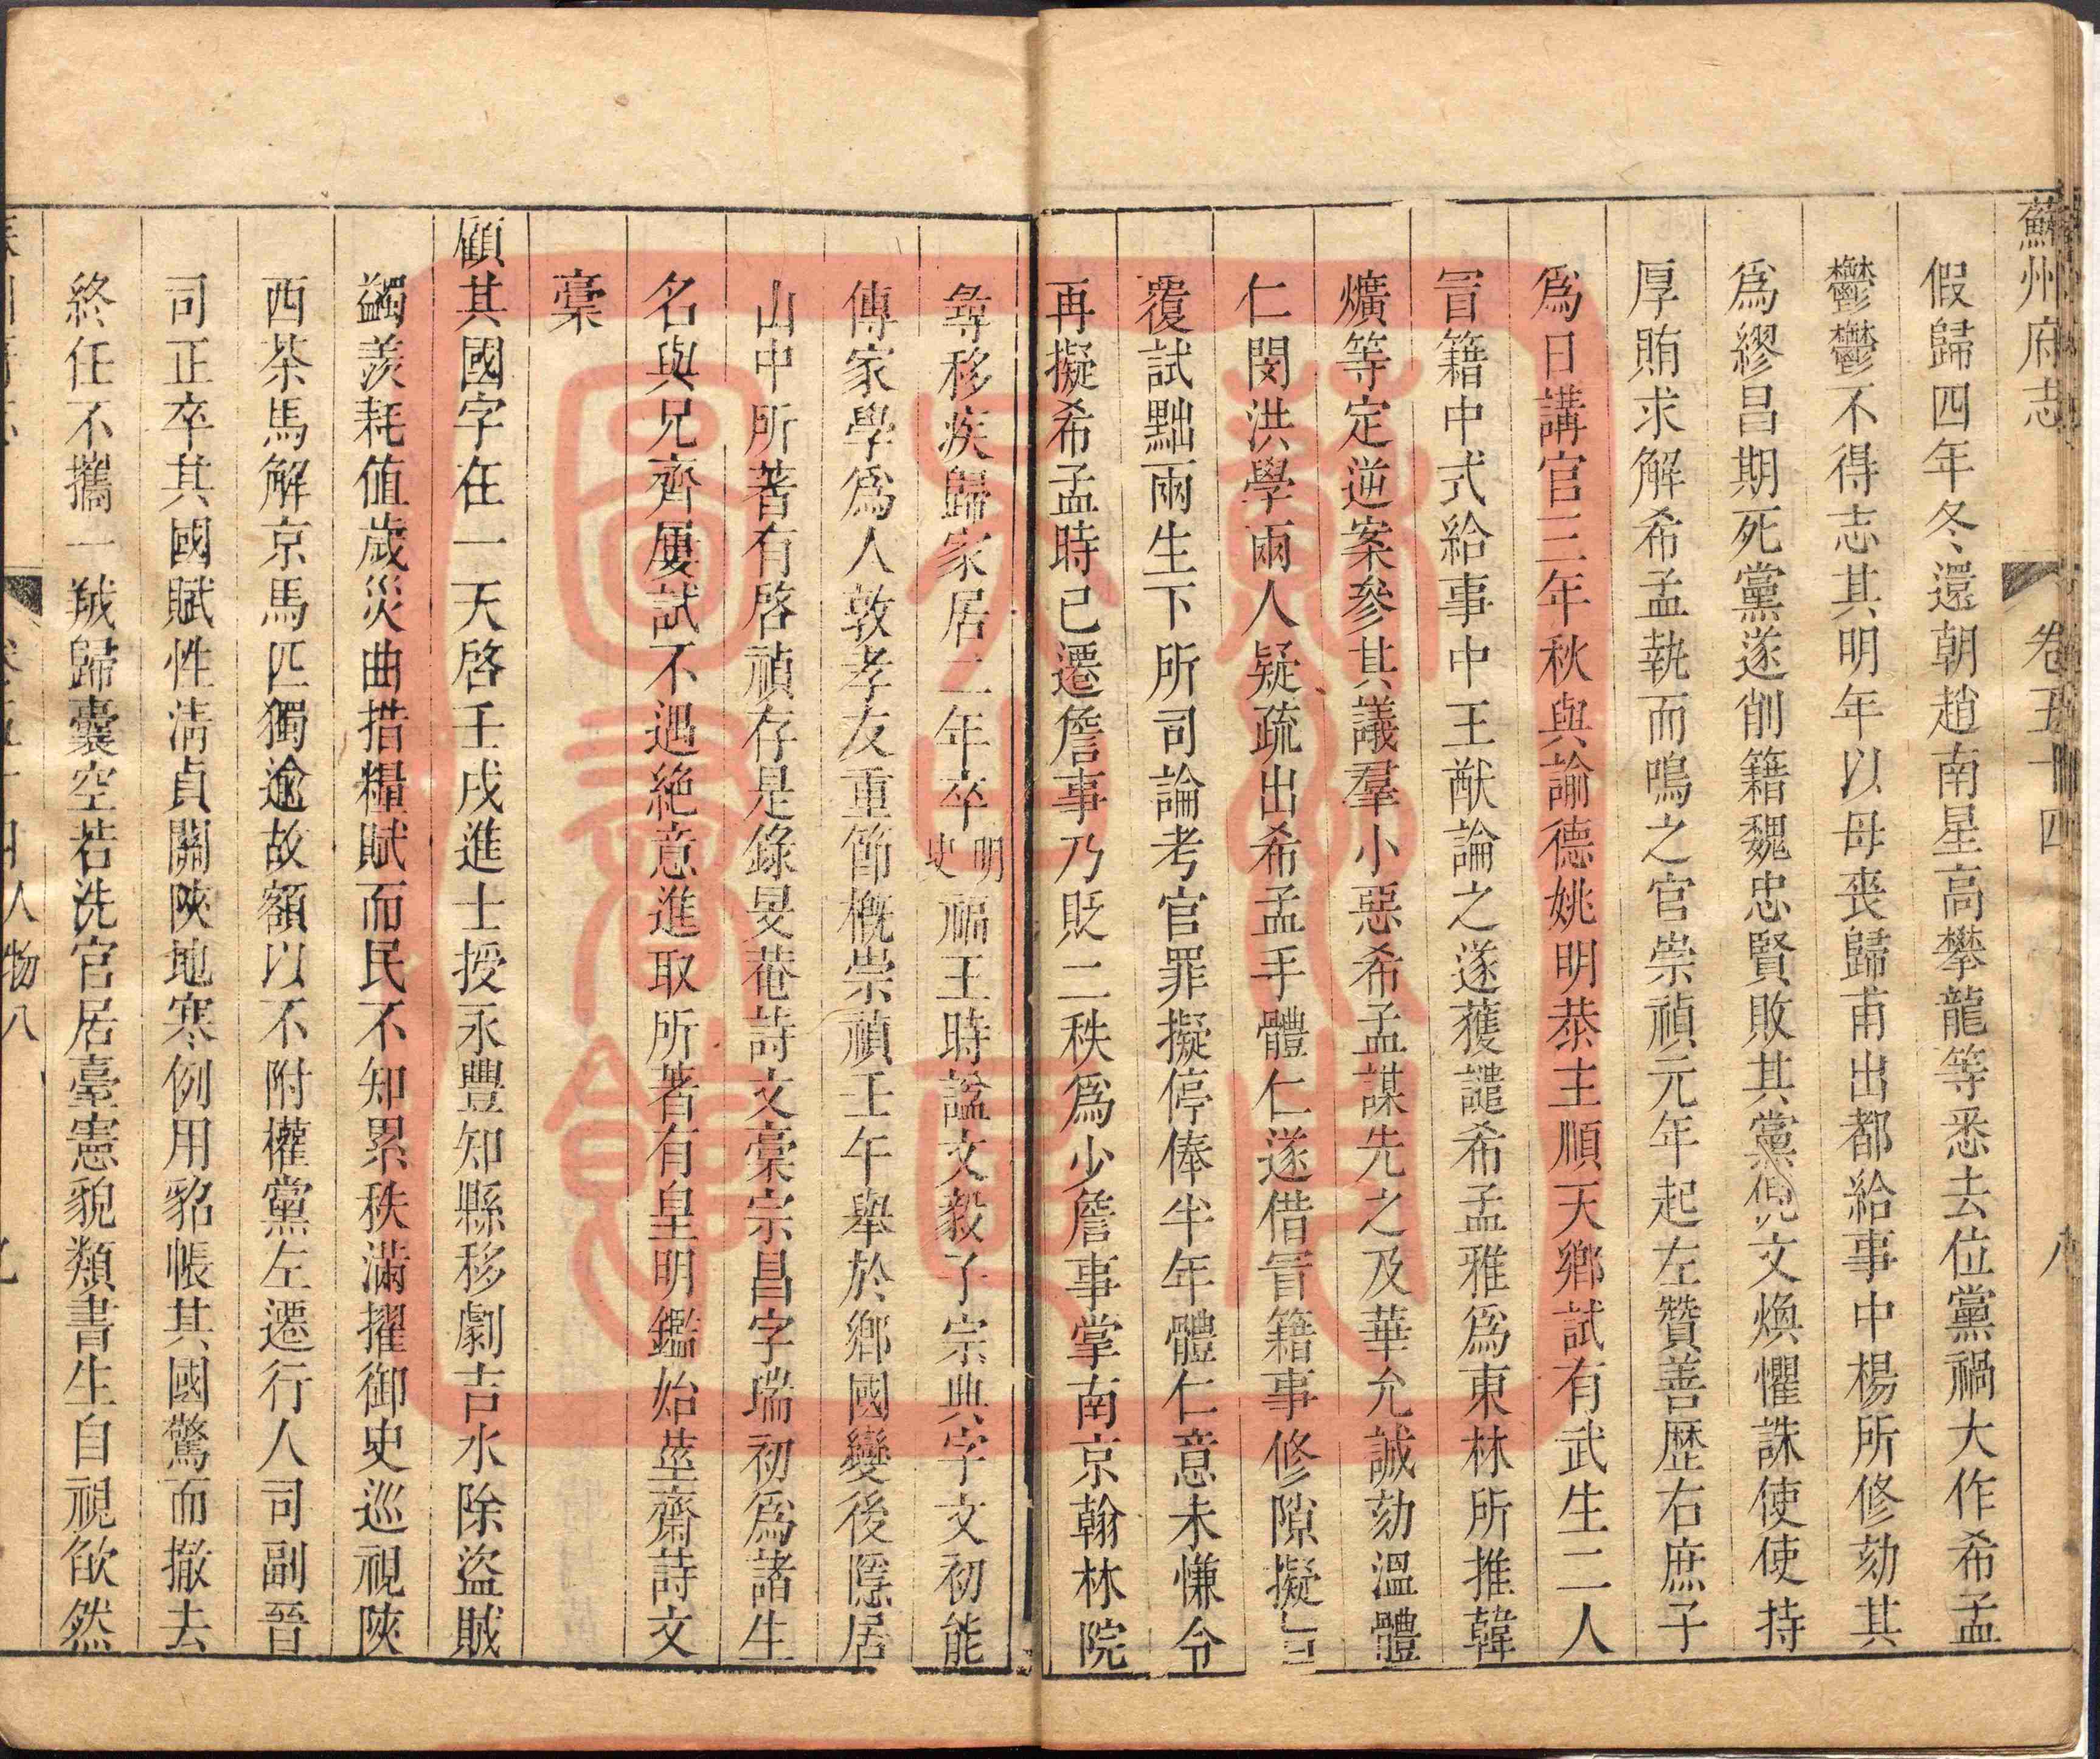 蘇州府志 卷五十四 八
假歸四年冬還朝趙南星高攀龍等悉去位黨禍大作希孟
鬱鬱不得志其明年以母喪歸甫出都給事中楊所修劾其
爲繆昌期死黨遂削籍魏忠賢敗其黨倪文煥懼誅使使持
厚賄求解希孟執而鳴之官崇禎元年起左贊善歷右庶子
爲日講官三年秋與諭德姚明恭主順天鄉試有武生二人
冒籍中式給事中王猷論之遂獲譴希孟雅爲東林所推韓
爌等定逆案參其議羣小惡希孟謀先之及華允誠劾溫體
仁閔洪學兩人疑疏出希孟手體仁遂借冒籍事修隙擬旨
覆試黜兩生下所司論考官罪擬停俸半年體仁意未慊令
再擬希孟時已遷詹事乃貶二秩爲少詹事掌南京翰林院
尋移疾歸家居二年卒明史福王時謚文毅子宗典字文初能
傳家學爲人敦孝友重節槪崇禎壬午舉於鄉國變後隱居
山中所著有啓禎存是錄旻菴詩文稾宗昌字瑞初爲諸生
名與兄齊屢試不遇絶意進取所著有皇明鑑始莖齋詩文
稾
顧其國字在一天啓壬戌進士授永豐知縣移劇吉水除盜賊
蠲羨耗值歲災曲措糧賦而民不知累秩滿擢御史巡視陝
西茶馬解京馬匹獨逾故額以不附權黨左遷行人司副晉
司正卒其國賦性淸貞關陝地寒例用貂帳其國驚而撤去
終任不攜一羢歸囊空若洗官居臺憲貌類書生自視欿然
人物八